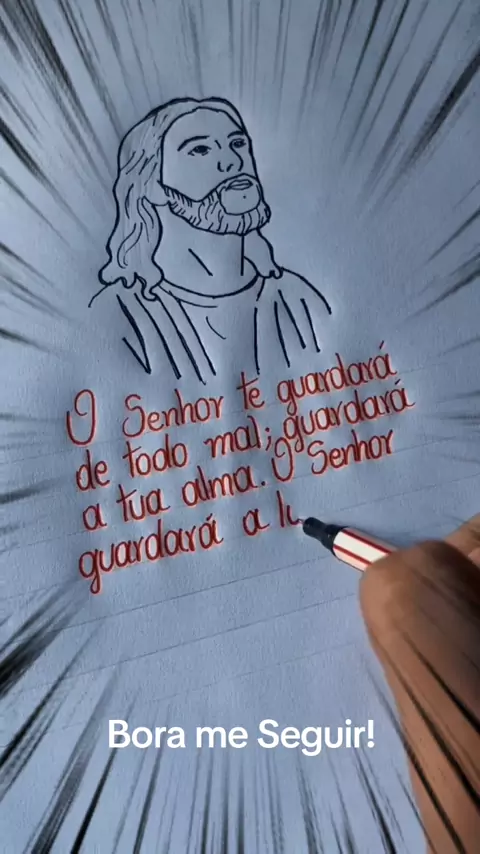 O Senhor te guardará
de todo mal; guardará
a tua alma. O Senhor
guardará a
Bora me Seguir!